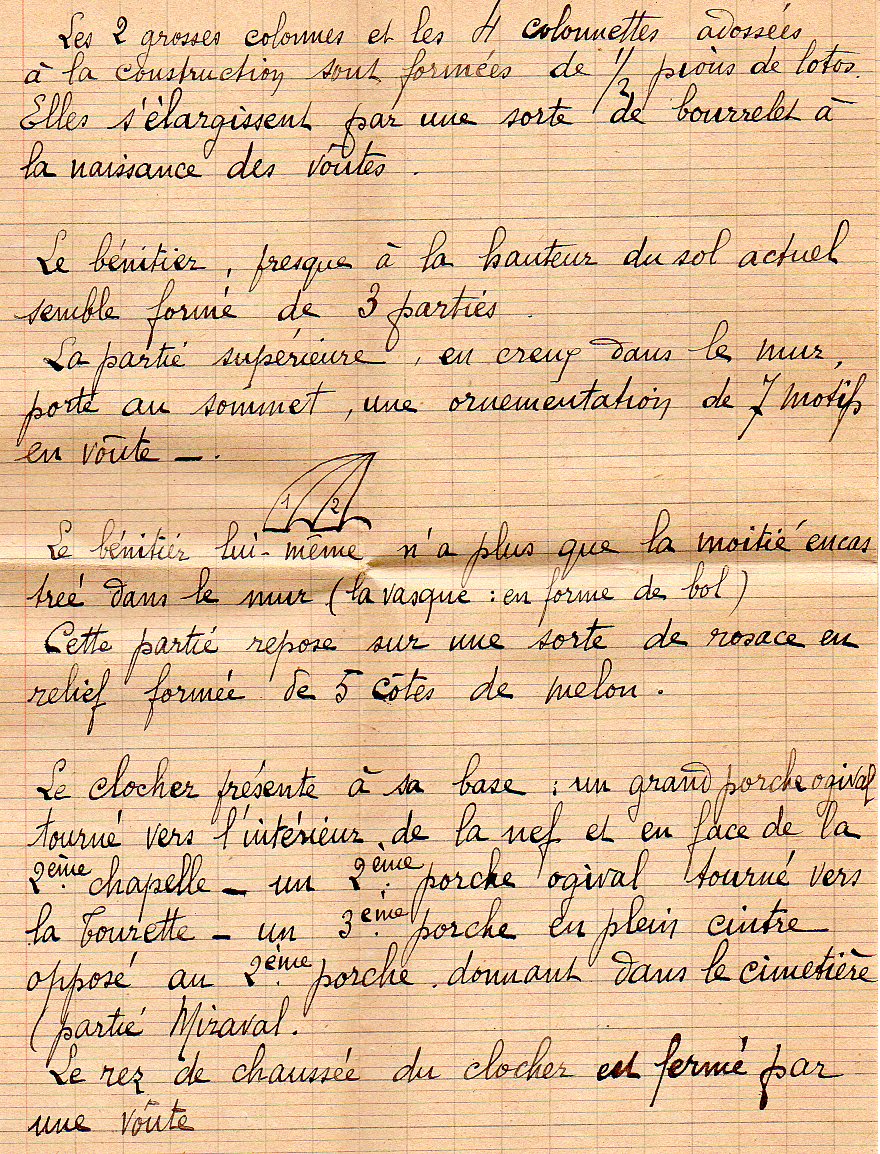 Les 2 grosses colonnes et les 4 colonnettes adossées
à la construction sont formées de 1/2 pions de lotos.
Elles s'élargissent par une sorte de bourrelet à
la naissance des voûtes.
Le bénitier, presque à la hauteur du sol actuel
semble formé de 3 parties.
La partie supérieure, en creux dans le mur,
porte au sommet, une ornementation de 7 motifs
en voûte —.
1 2
Le bénitier lui-même n'a plus que la moitié encas
treé dans le mur (la vasque : en forme de bol)
Cette partie repose sur une sorte de rosace en
relief formée de 5 côtes de melon.
Le clocher présente à sa base : un grand porche ogival
tourné vers l'intérieur de la nef et en face de la
2ème chapelle — un 2ème porche ogival tourné vers
la Tourette — un 3ème porche en plein cintre
opposé au 2ème porche donnant dans le cimetière
(partie Miraval.
Le rez de chaussée du clocher est fermé par
une voûte